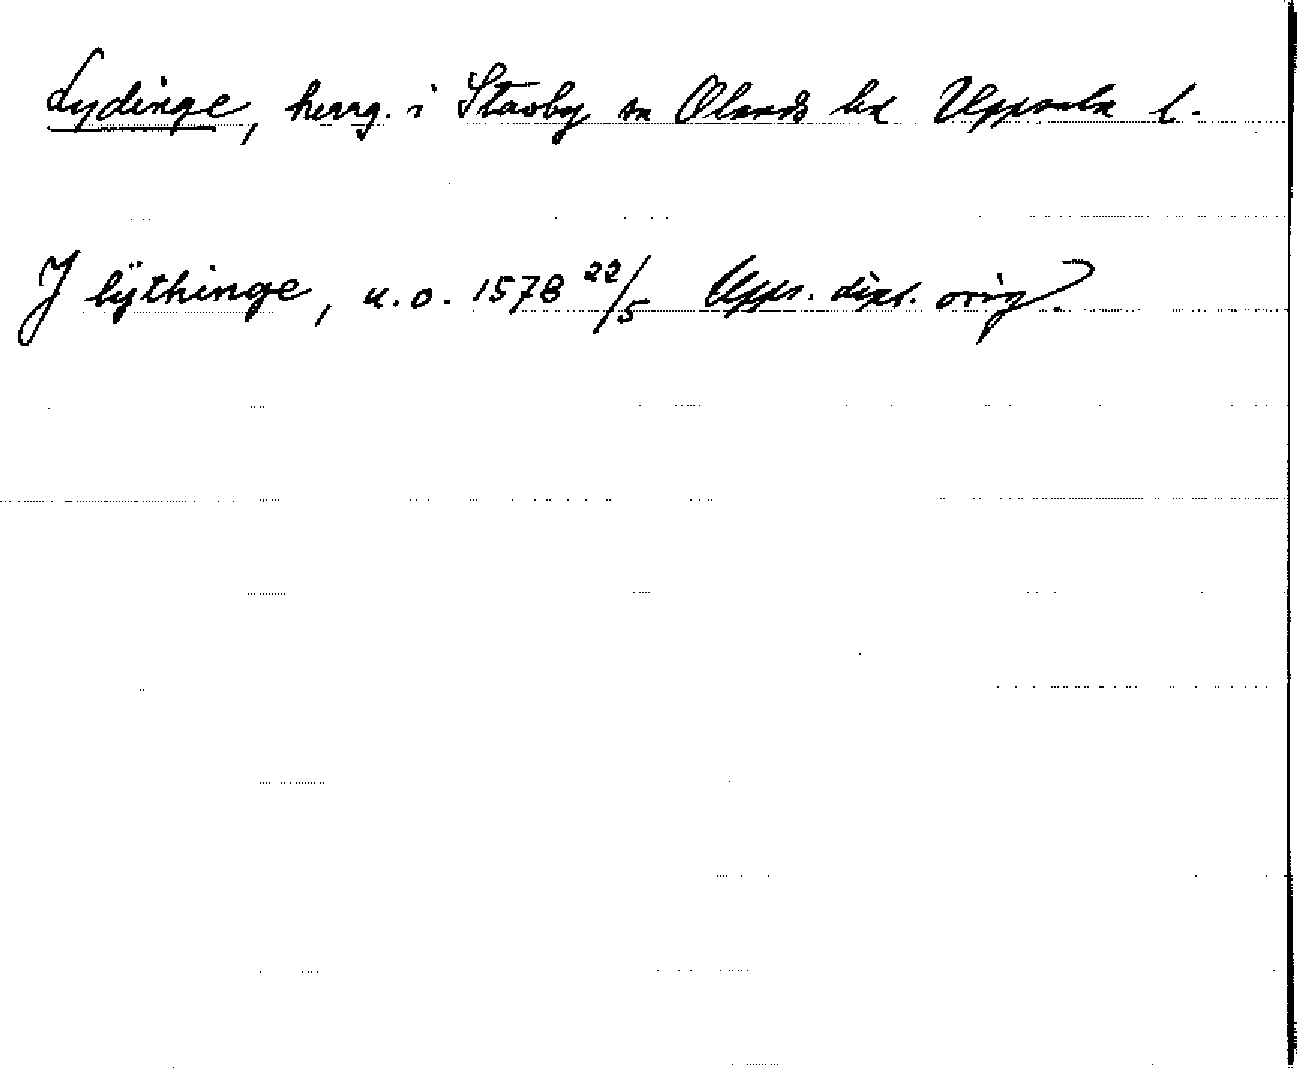 Lydinge, herrg. i Stavby sn Olands hd Uppsala l.
J lÿthinge, u.o. 1578 22/5 Upps. dipl. orig.